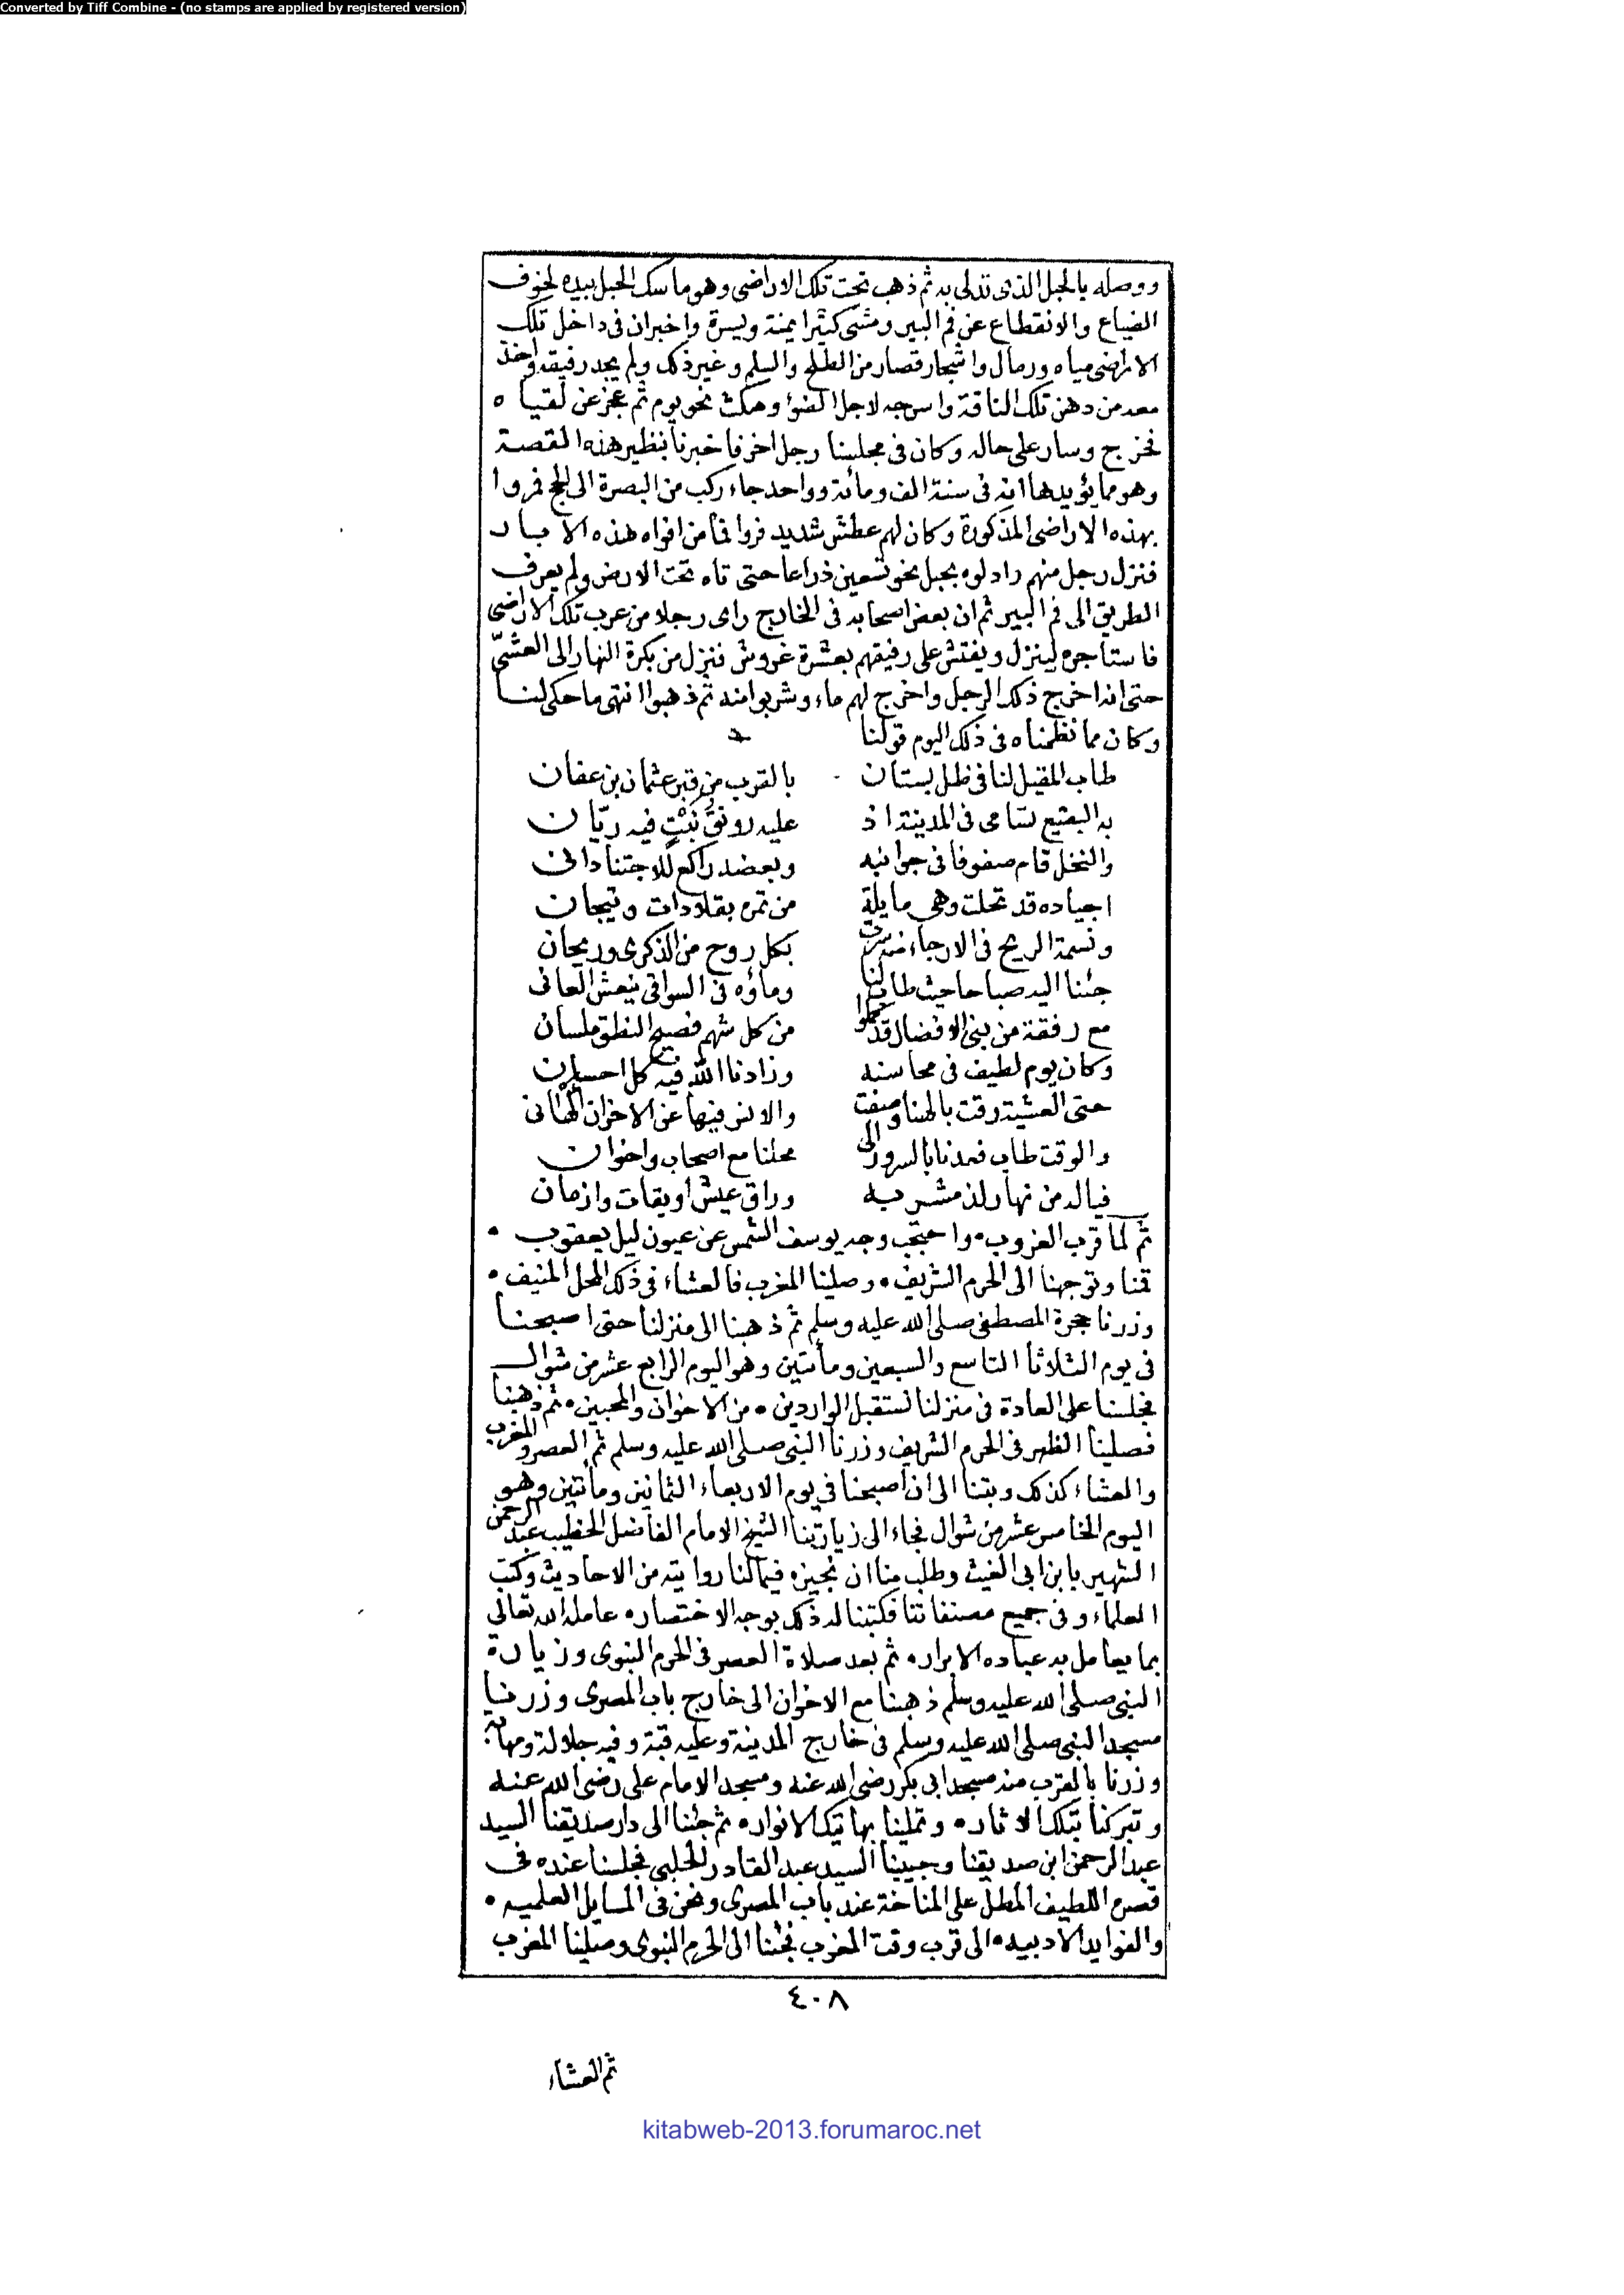 Converted by Tiff Combine - (no stamps are applied by registered version)
ووصله بالحبل الذى تدلى به ثم ذهب تحت تلك الاراضى وهو ماسك الحبل بيده لخوف
الضياع والانقطاع عن فم البير ومشى كثيرا يمنة ويسرة واخبر ان فى داخل تلك
الاراضى مياه ورمال واشجار قصار من الطلح والسلم وغير ذلك ولم يجد رفيقه واخذ
معه من دهن تلك الناقة واسرجه لاجل الضؤ ومكث نحو يوم ثم عجز عن لقياه
فخرج وسار على حاله وكان فى مجلسنا رجل اخر فاخبرنا بنظير هذه القصة
وهو مما يؤيدها انه فى سنة الف ومائة وواحد جاء ركب من البصرة الى الحج فمروا
بهذه الاراضى المذكورة وكان لهم عطش شديد فروا فما من افواه هذه الابار
فنزل رجل منهم وادلوه بحبل نحو تسعين ذراعا حتى تاه تحت الارض ولم يعرف
الطريق الى فم البير ثم ان بعض اصحابه فى الخارج راى رجلا من عرب تلك الاراضى
فاستاجره لينزل ويفتش على رفيقهم بعشرة غروش فنزل من بكرة النهار الى العشىّ
حتى انه اخرج ذلك الرجل واخرج لهم ماء وشربوا منه ثم ذهبوا انتهى ما حكى لنا
وكان مما نظمناه فى ذلك اليوم قولنا
طاب المقيل لنا فى ظل بستان بالقرب من قبر عثمان بن عفان
به البقيع تسامى فى المدينة اذ عليه رونقُ نَبْتٍ فيه ريّان
والنخل قام صفوفا فى جوانبه وبعضه راكع للاجتنا دانى
اجياده قد تحلت وهى مايلة من تمره بقلادات وتيجان
ونسمة الريح فى الارجاء منه سرت بكل روح من الذكرى وريحان
جئنا اليه صباحا حيث طاب لنا وماؤه فى السواقى ينعش العانى
مع رفقة من بنى الافضال قد كملوا من كل شهم فصيح النطق ملسان
وكان يوم لطيف فى محاسنه وزادنا الله فيه كل احسان
حتى العشية رقت بالهنا وصفت والانس فيها عن الاخوان الهانى
والوقت طاب فعدنا بالسرور الى محلنا مع اصحاب واخوان
فياله من نهار لذ مشربه وراق عيش اويقات وازمان
ثم لما قرب الغروب • واحتجب وجه يوسف الشمس عن عيون ليل يعقوب •
قمنا وتوجهنا الى الحرم الشريف • وصلينا المغرب فالعشاء فى ذلك المحل المنيف •
وزرنا حجرة المصطفى صلى الله عليه وسلم ثم ذهبنا الى منزلنا حتى اصبحنا
فى يوم الثلاثا التاسع والسبعين ومأتين وهو اليوم الرابع عشر من شوال
فجلسنا على العادة فى منزلنا نستقبل الواردين • من الاخوان والمحبين • ثم ذهبنا
فصلينا الظهر فى الحرم الشريف وزرنا النبى صلى الله عليه وسلم ثم العصر والمغرب
والعشاء كذلك وبتنا الى ان اصبحنا فى يوم الاربعاء الثمانين ومأتين وهو
اليوم الخامس عشر من شوال فجاء الى زيارتنا الشيخ الامام الفاضل الخطيب عبد الرحمن
الشهير بابن ابى الغيث وطلب منا ان نجيزه فيما لنا روايته من الاحاديث وكتب
العلماء وفى جميع مصنفاتنا فكتبنا له ذلك بوجه الاختصار • عامله الله تعالى
بما يعامل به عباده الابرار • ثم بعد صلاة العصر فى الحرم النبوى وزيارة
النبى صلى الله عليه وسلم ذهبنا مع الاخوان الى خارج باب المصرى وزرنا
مسجد النبى صلى الله عليه وسلم فى خارج المدينة وعليه قبة وفيه جلالة ومهابة
وزرنا بالقرب منه مسجد ابى بكر رضى الله عنه ومسجد الامام على رضى الله عنه
وتبركنا بتلك الاثار • وتملينا بهاتيك الانوار • ثم جئنا الى دار صديقنا السيد
عبد الرحمن ابن صديقنا وحبيبنا السيد عبد القادر الحلبى فجلسنا عنده فى
قصره اللطيف المطل على المناخة عند باب المصرى ونحن فى المسايل العلميه •
والفوايد الادبيه • الى قرب وقت المغرب فجئنا الى الحرم النبوى وصلينا المغرب
٤٠٨
ثم العشاء
kitabweb-2013.forumaroc.net